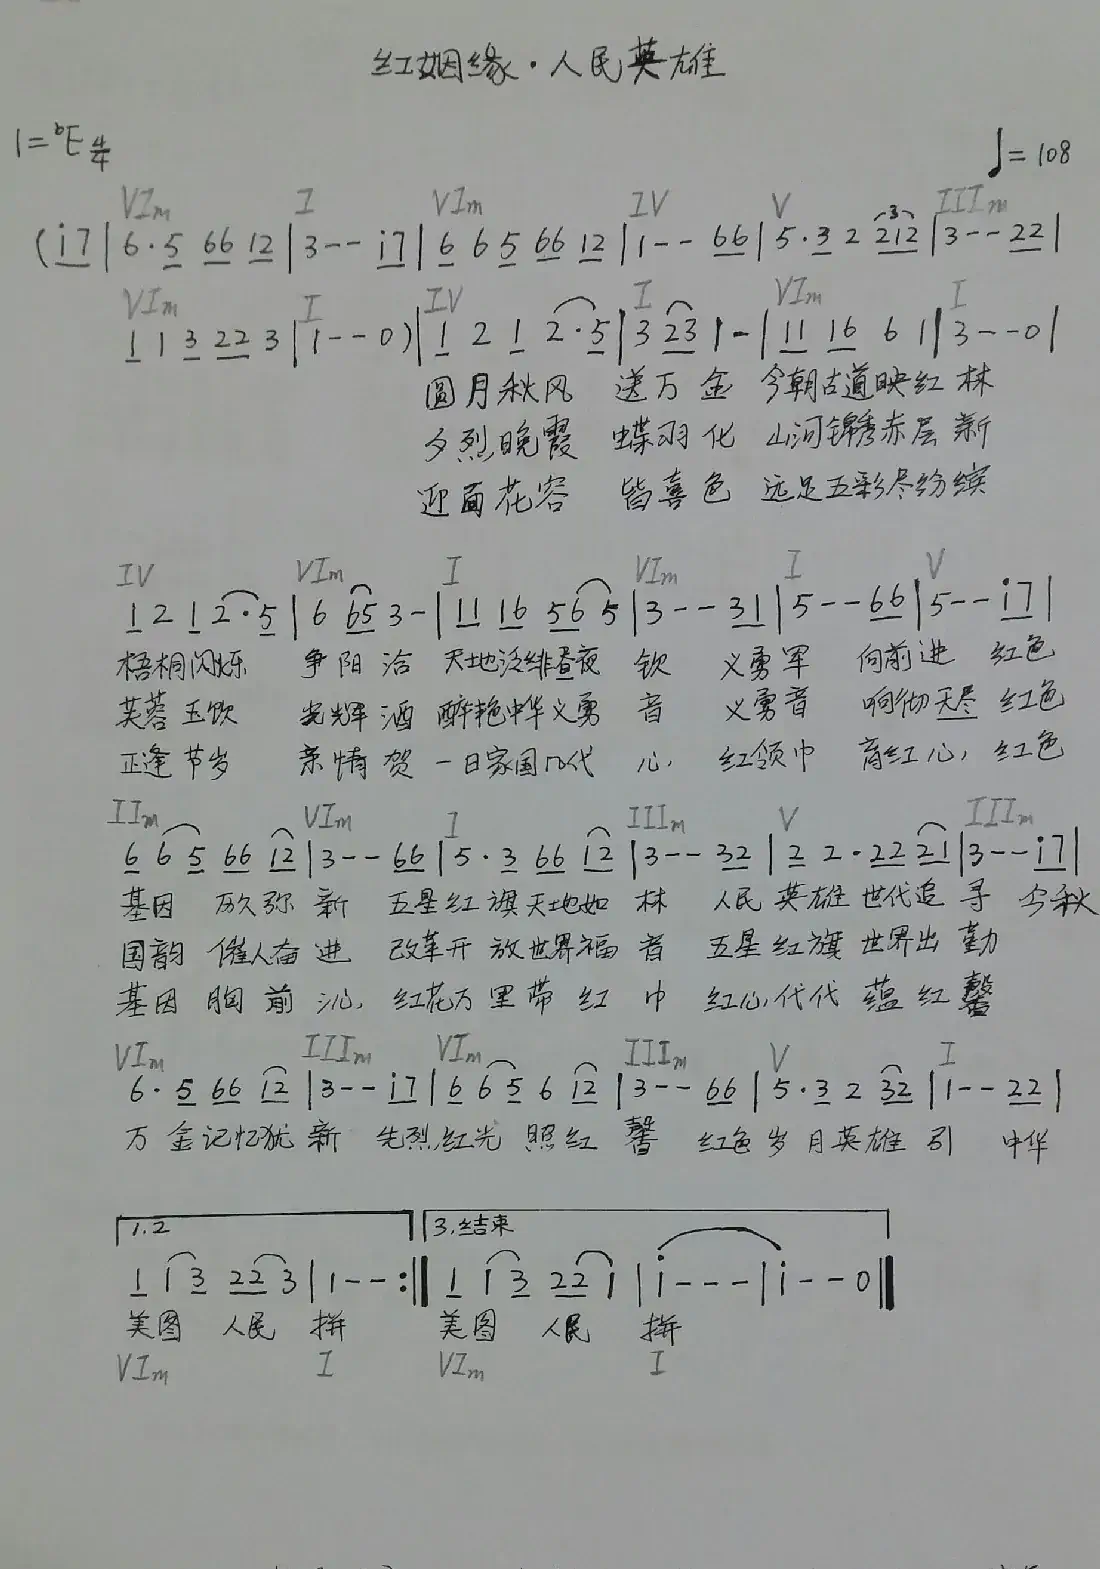 红姻缘·人民英雄
1=ᵇE 4/4
♩=108
VIm I VIm IV V IIIm
(i7|6·5 66 12|3--i7|6 6 5 66 12|1--66|5·3 2 212|3--22|
3
VIm I IV I VIm I
1 1 3 22 3|1--0)|1 2 1 2·5|3 23 1-|11 16 6 1|3--0|
圆月秋风 送万金 今朝古道映红林
夕烈晚霞 蝶羽化 山河锦秀赤层新
迎面花容 皆喜色 远足五彩尽纷缤
IV VIm I VIm I V
1 2 1 2·5|6 65 3-|11 16 56 5|3--31|5--66|5--i7|
梧桐闪烁 争阳洽 天地泛绯昼夜 钦 义勇军 向前进 红色
芙蓉玉饮 光辉酒 醉艳中华义勇 音 义勇音 响彻天尽 红色
正逢节岁 亲情贺 一日家国几代 心, 红领巾 育红心, 红色
IIm VIm I IIIm V IIIm
6 6 5 66 12|3--66|5·3 66 12|3--32|2 2·22 21|3--i7|
基因 历久弥新 五星红旗天地如林 人民英雄世代追寻 今秋
国韵 催人奋进 改革开放世界福音 五星红旗世界出勤
基因 胸前沁, 红花万里带红巾 红心,代代蕴红馨
VIm IIIm VIm IIIm V I
6·5 66 12|3--i7|6 6 5 6 12|3--66|5·3 2 32|1--22|
万金记忆犹新 先烈,红光照红馨 红色岁月英雄引 中华
1.2 3.结束
1 1 3 22 3|1--:‖1 1 3 22 1|i---|i--0‖
美图 人民 拼 美图 人民 拼
VIm I VIm I